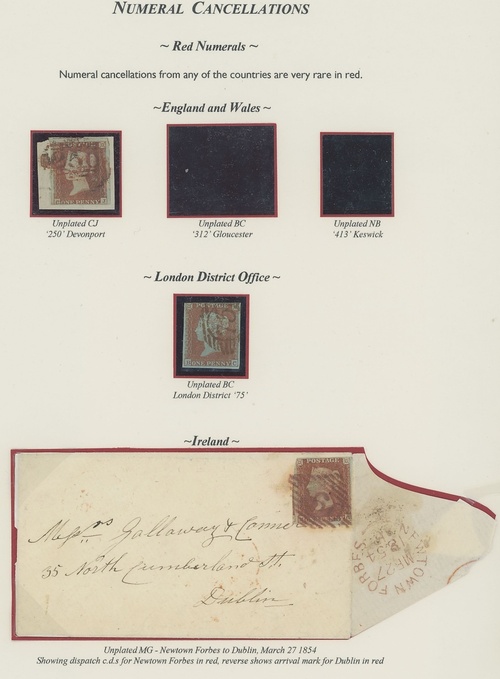 NUMERAL CANCELLATIONS
~ Red Numerals ~
Numeral cancellations from any of the countries are very rare in red.
~England and Wales ~
Unplated CJ
'250' Devonport
Unplated BC
'312' Gloucester
Unplated NB
'413' Keswick
~ London District Office ~
POSTAGE
ONE PENNY
Unplated BC
London District '75'
~Ireland ~
POSTAGE
Messrs Gallaway & Conne
35 North Cumberland St.
Dublin
NEWTOWN FORBES
MR27
1854
Unplated MG - Newtown Forbes to Dublin, March 27 1854
Showing dispatch c.d.s for Newtown Forbes in red, reverse shows arrival mark for Dublin in red